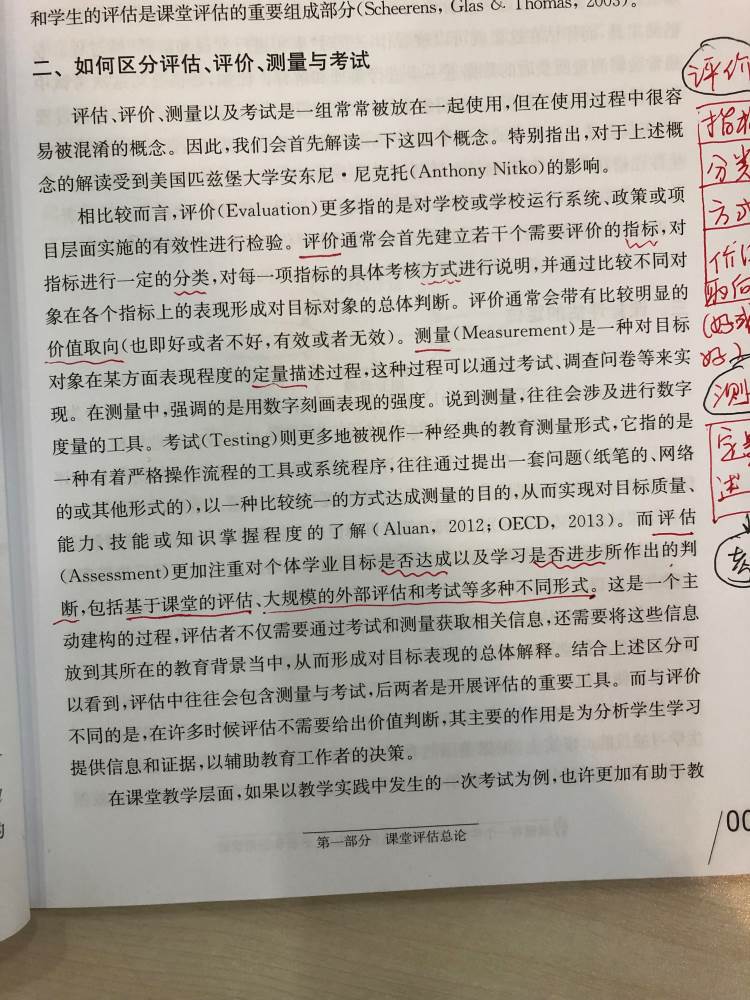 和学生的评估是课堂评估的重要组成部分(Scheerens, Glas & Thomas, 2003)。
二、如何区分评估、评价、测量与考试
评估、评价、测量以及考试是一组常常被放在一起使用,但在使用过程中很容
易被混淆的概念。因此,我们会首先解读一下这四个概念。特别指出,对于上述概
念的解读受到美国匹兹堡大学安东尼·尼克托(Anthony Nitko)的影响。
相比较而言,评价(Evaluation)更多指的是对学校或学校运行系统、政策或项
目层面实施的有效性进行检验。评价通常会首先建立若干个需要评价的指标,对
指标进行一定的分类,对每一项指标的具体考核方式进行说明,并通过比较不同对
象在各个指标上的表现形成对目标对象的总体判断。评价通常会带有比较明显的
价值取向(也即好或者不好,有效或者无效)。测量(Measurement)是一种对目标
对象在某方面表现程度的定量描述过程,这种过程可以通过考试、调查问卷等来实
现。在测量中,强调的是用数字刻画表现的强度。说到测量,往往会涉及进行数字
度量的工具。考试(Testing)则更多地被视作一种经典的教育测量形式,它指的是
一种有着严格操作流程的工具或系统程序,往往通过提出一套问题(纸笔的、网络
的或其他形式的),以一种比较统一的方式达成测量的目的,从而实现对目标质量、
能力、技能或知识掌握程度的了解(Aluan, 2012; OECD, 2013)。而评估
(Assessment)更加注重对个体学业目标是否达成以及学习是否进步所作出的判
断,包括基于课堂的评估、大规模的外部评估和考试等多种不同形式。这是一个主
动建构的过程,评估者不仅需要通过考试和测量获取相关信息,还需要将这些信息
放到其所在的教育背景当中,从而形成对目标表现的总体解释。结合上述区分可
以看到,评估中往往会包含测量与考试,后两者是开展评估的重要工具。而与评价
不同的是,在许多时候评估不需要给出价值判断,其主要的作用是为分析学生学习
提供信息和证据,以辅助教育工作者的决策。
在课堂教学层面,如果以教学实践中发生的一次考试为例,也许更加有助于教
第一部分 课堂评估总论
/00
评价
指标
分类
方式
价值
取向
(好或
测